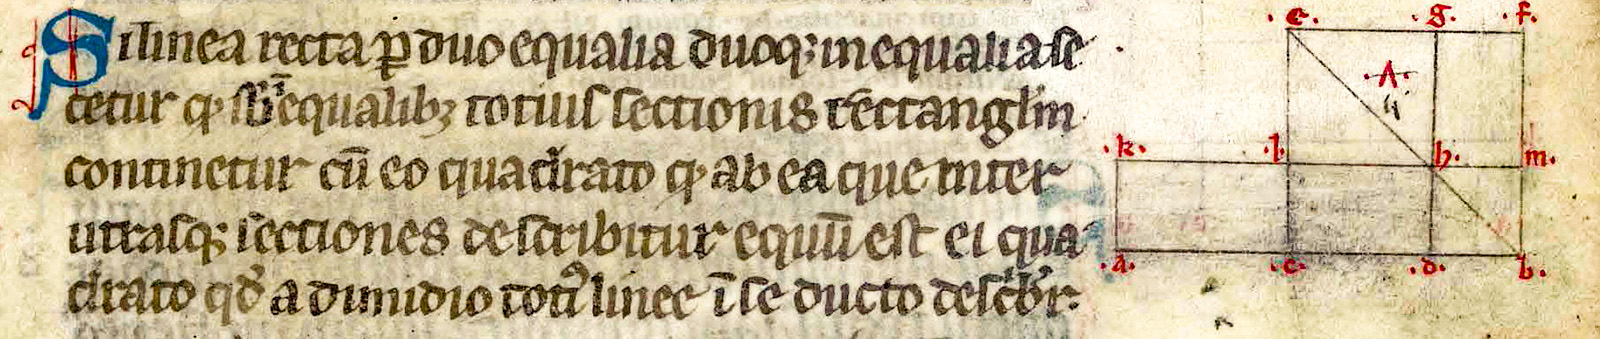 Si linea recta ꝑ duo equalia duoqꝫ inequalia se
cetur qͥ sub̄ equalibꝫ totius sectionis rectangl̄m
continetur cū eo quadrato qͥ ab ea que inter
utrasqꝫ sectiones describitur equū est ei qua
drato qd̓ a dimidio totiꝰ linee ī se ducto describr̄
.e. .g. .f.
.k. .l. .h. .m.
.a. .c. .d. .b.